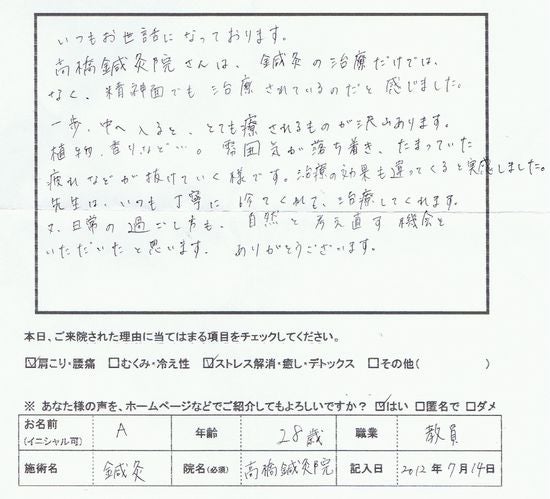 いつもお世話になっております。
高橋鍼灸院さんは、鍼灸の治療だけでは、
なく、精神面でも治療されているのだと感じました。
一歩、中へ入ると、とても癒されるものが沢山あります。
植物、香りなど…。雰囲気が落ち着き、たまっていた
疲れなどが抜けていく様です。治療の効果も違ってくると実感しました。
先生は、いつも丁寧に診てくれて、治療してくれます。
又、日常の過ごし方も、自然と考え直す機会を
いただいたと思います。ありがとうございます。
本日、ご来院された理由に当てはまる項目をチェックしてください。
☑肩こり・腰痛 □むくみ・冷え性 ☑ストレス解消・癒し・デトックス □その他( )
※ あなた様の声を、ホームページなどでご紹介してもよろしいですか？ ☑はい □匿名で □ダメ
お名前 (イニシャル可) A 年齢 28歳 職業 教員
施術名 鍼灸 院名(必須) 高橋鍼灸院 記入日 2012年7月14日